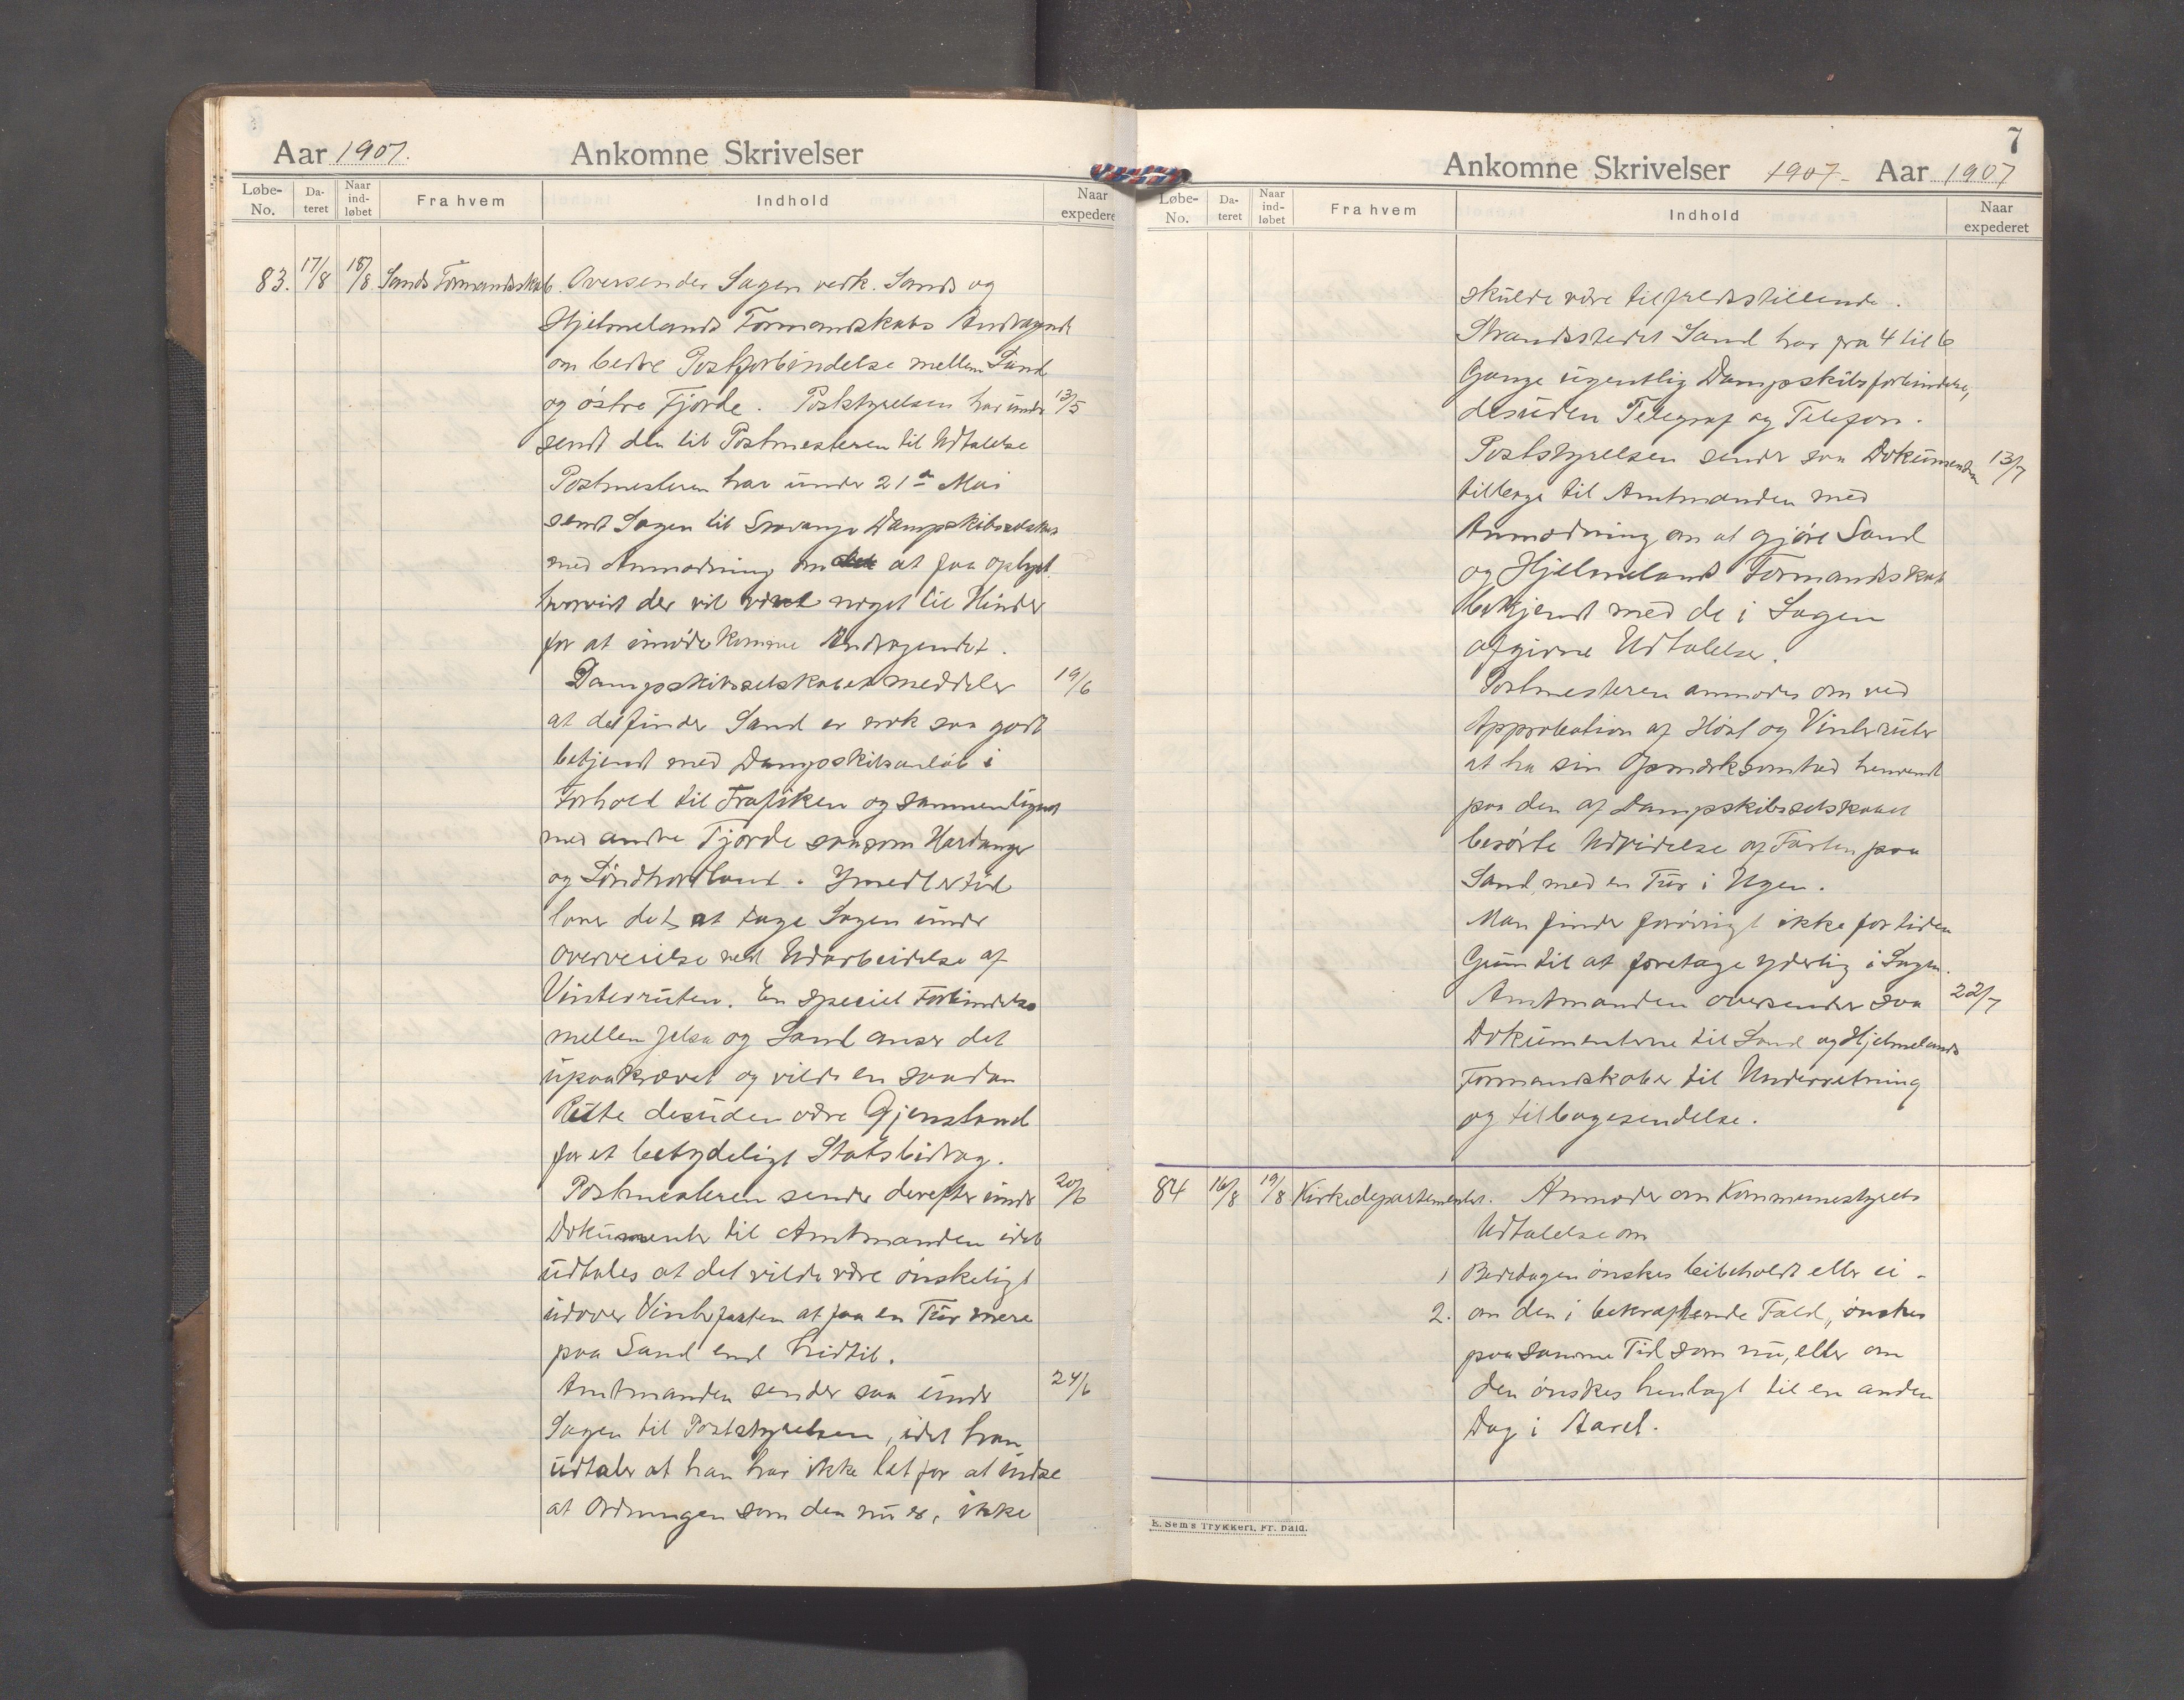 Aar 1907. Ankomne Skrivelser
Løbe-No. Da-teret Naar ind-løbet Fra hvem Indhold Naar expederet
83. 17/8 18/8 Sands Formandskab. Oversender Sagen vedk. Sands og
Hjelmelands Formandskabs Andragende
om bedre Postforbindelse mellem Sand
og østre Fjorde. Poststyrelsen har under 13/5
sendt den til Postmesteren til Udtalelse
Postmesteren har under 21de Mai
sendt Sagen til Stavanger Dampskibsselskab
med Anmodning om at faa oplyst
hvorvidt der vil være noget til Hinder
for at imødekomme Andragendet.
Dampskibsselskabet meddeler 19/6
at det finder Sand er nok saa godt
betjent med Dampskibsanløb i
Forhold til Trafiken og sammenlignet
med andre Fjorde saasom Hardanger
og Søndhordland. Ymedlertid
lover det at tage Sagen under
Overveielse ved Udarbeidelse af
Vinterruten. En speciel Forbindelse
mellem Jelsa og Sand anser det
upaakrævet og vilde en saadan
Rute desuden være Gjenstand
for et betydeligt Statsbidrag.
Postmesteren sender derefter under 20/6
Dokumenter til Amtmanden idet
udtales at det vilde være ønskeligt
udover Vinterfarten at faa en Tur mere
paa Sand end hidtil.
Amtmanden sender saa under 24/6
Sagen til Poststyrelsen, idet han
udtaler at han har ikke let for at indse
at Ordningen som den nu er, ikke
7
Ankomne Skrivelser 1907- Aar 1907
Løbe-No. Da-teret Naar ind-løbet Fra hvem Indhold Naar expederet
skulde være tilfredsstillende.
Strandstedet Sand har fra 4 til 6
Gange ugentlig Dampskibsforbindelse,
desuden Telegraf og Telefon.
Poststyrelsen sender saa Dokumenterne 13/7
tilbage til Amtmanden med
Anmodning om at gjøre Sand
og Hjelmeland Formandskab
bekjendt med de i Sagen
afgivne Udtalelser.
Postmesteren anmodes om ved
Approbation af Høst og Vinterruter
at ha sin Opmærksomhed henvendt
paa den af Dampskibsselskabet
Udvidelse af Farten paa
Sand med en Tur i Ugen.
Man finder forøvrigt ikke for tiden
Grund til at foretage yderlig i Sagen.
Amtmanden oversender saa 22/7
Dokumenterne til Sand og Hjelmelands
Formandskaber til Underretning
og tilbagesendelse.
84 16/8 19/8 Kirkedepartementet. Anmoder om Kommunestyrets
Udtalelse om
1 Bededagen ønskes beibeholdt eller ei -
2. om den i bekræftende Fald, ønskes
paa samme Tid som nu, eller om
den ønskes henlagt til en anden
Dag i Aaret.
E. Sem's Trykkeri, Fr. hald.